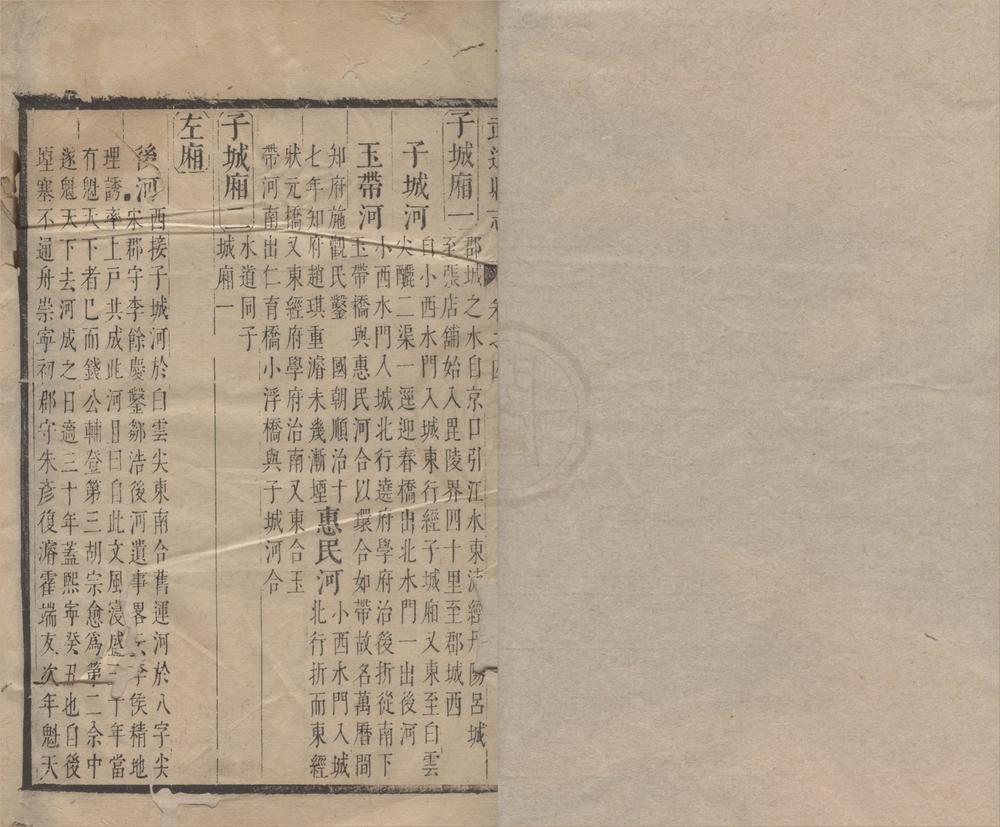 武進縣志 卷之四
子城廂一
郡城之水自京口引江水東流經丹陽呂城
至張店舖始入毘陵界四十里至郡城西
子城河
自小西水門入城東行經子城廂又東至白雲
尖釃二渠一逕迎春橋出北水門一出後河
玉帶河
小西水門入城北行遶府學府治後折從南下
玉帶橋與惠民河合以環合如帶故名萬曆間
知府施觀民鑿 國朝順治十
七年知府趙琪重濬未幾漸堙
惠民河
小西水門入城
北行折而東經
狀元橋又東經府學府治南又東合玉
帶河南出仁育橋小浮橋與子城河合
子城廂二
水道同子
城廂一
左廂
後河
西接子城河於白雲尖東南合舊運河於八字尖
宋郡守李餘慶鑿鄒浩後河遺事畧云李侯精地
理誘率上戶共成此河目曰自此文風寖盛三十年當
有魁天下者已而錢公輔登第三胡宗愈為第二余中
遂魁天下去河成之日適三十年蓋熙寧癸丑也自後
堙塞不通舟崇寧初郡守朱彥復濬霍端友次年魁天